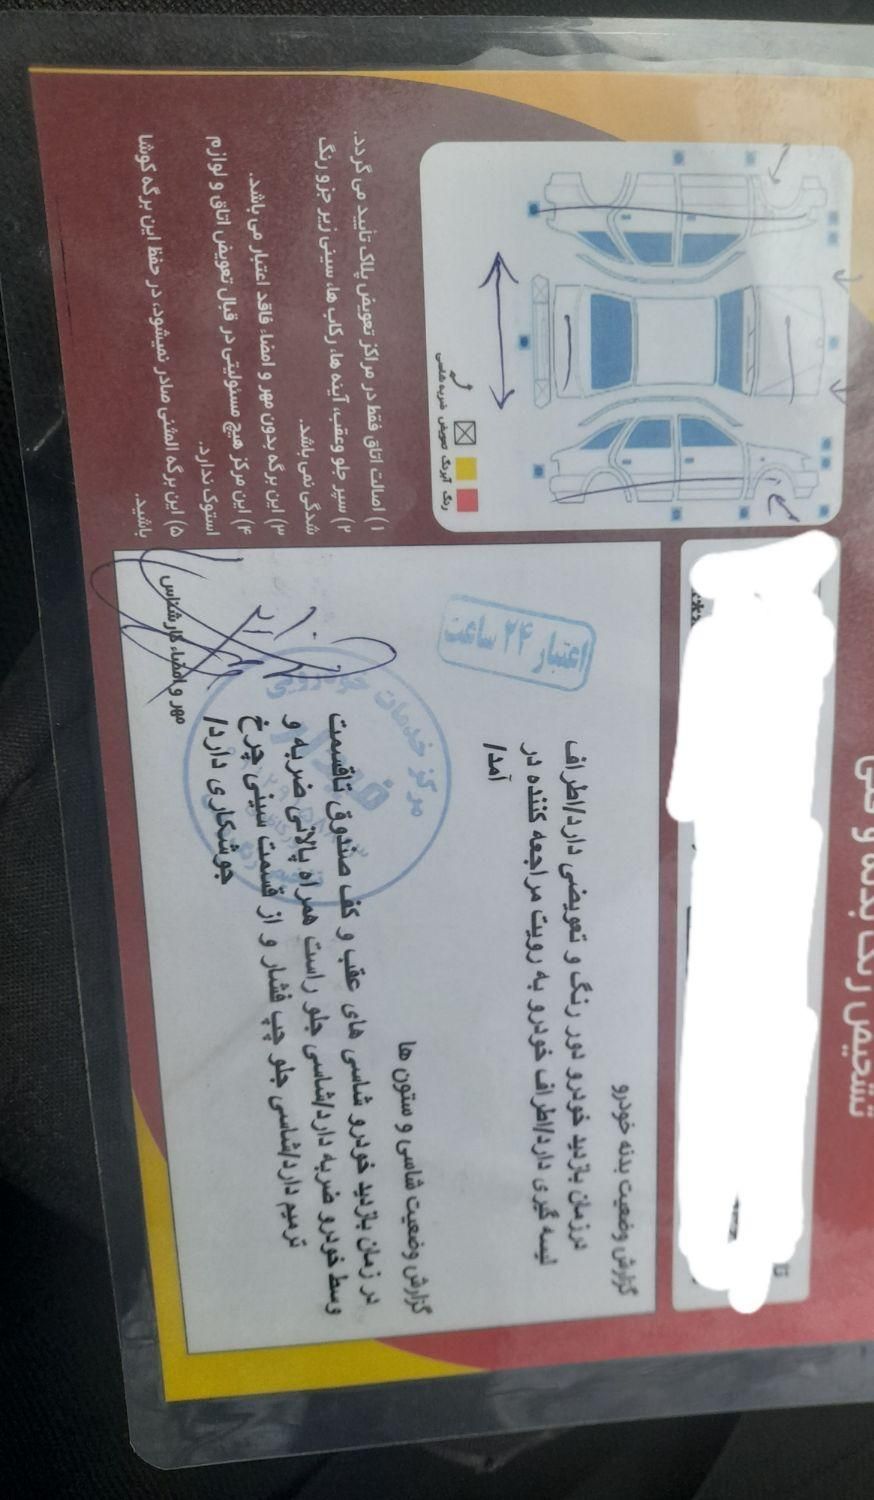 تشخیص رنگ بدنه و فنی
تا
گزارش وضعیت بدنه خودرو
درزمان بازدید خودرو دور رنگ و تعویضی دارد/اطراف
لیسه گیری دارد/اطراف خودرو به رویت مراجعه کننده در
آمد/
اعتبار ۲۴ ساعت
گزارش وضعیت شاسی و ستون ها
در زمان بازدید خودرو شاسی های عقب و کف صندوق تاقسمت
وسط خودرو ضربه دارد/شاسی جلو راست همراه پالانی ضربه و
ترمیم دارد/شاسی جلو چپ فشار و از قسمت سینی چرخ
جوشکاری دارد/
مرکز خدمات خودرویی
مهر و امضاء کارشناس
رنگ آبرنگ تعویض ضربه شاسی
۱) اصالت اتاق فقط در مراکز تعویض پلاک تأیید می گردد.
۲) سپر جلو وعقب، آینه ها، رکاب ها، سینی زیر جزو رنگ
شدگی نمی باشد.
۳) این برگه بدون مهر و امضاء فاقد اعتبار می باشد.
۴) این مرکز هیچ مسئولیتی در قبال تعویض اتاق و لوازم
استوک ندارد.
۵) این برگه المثنی صادر نمیشود، در حفظ این برگه کوشا
باشید.